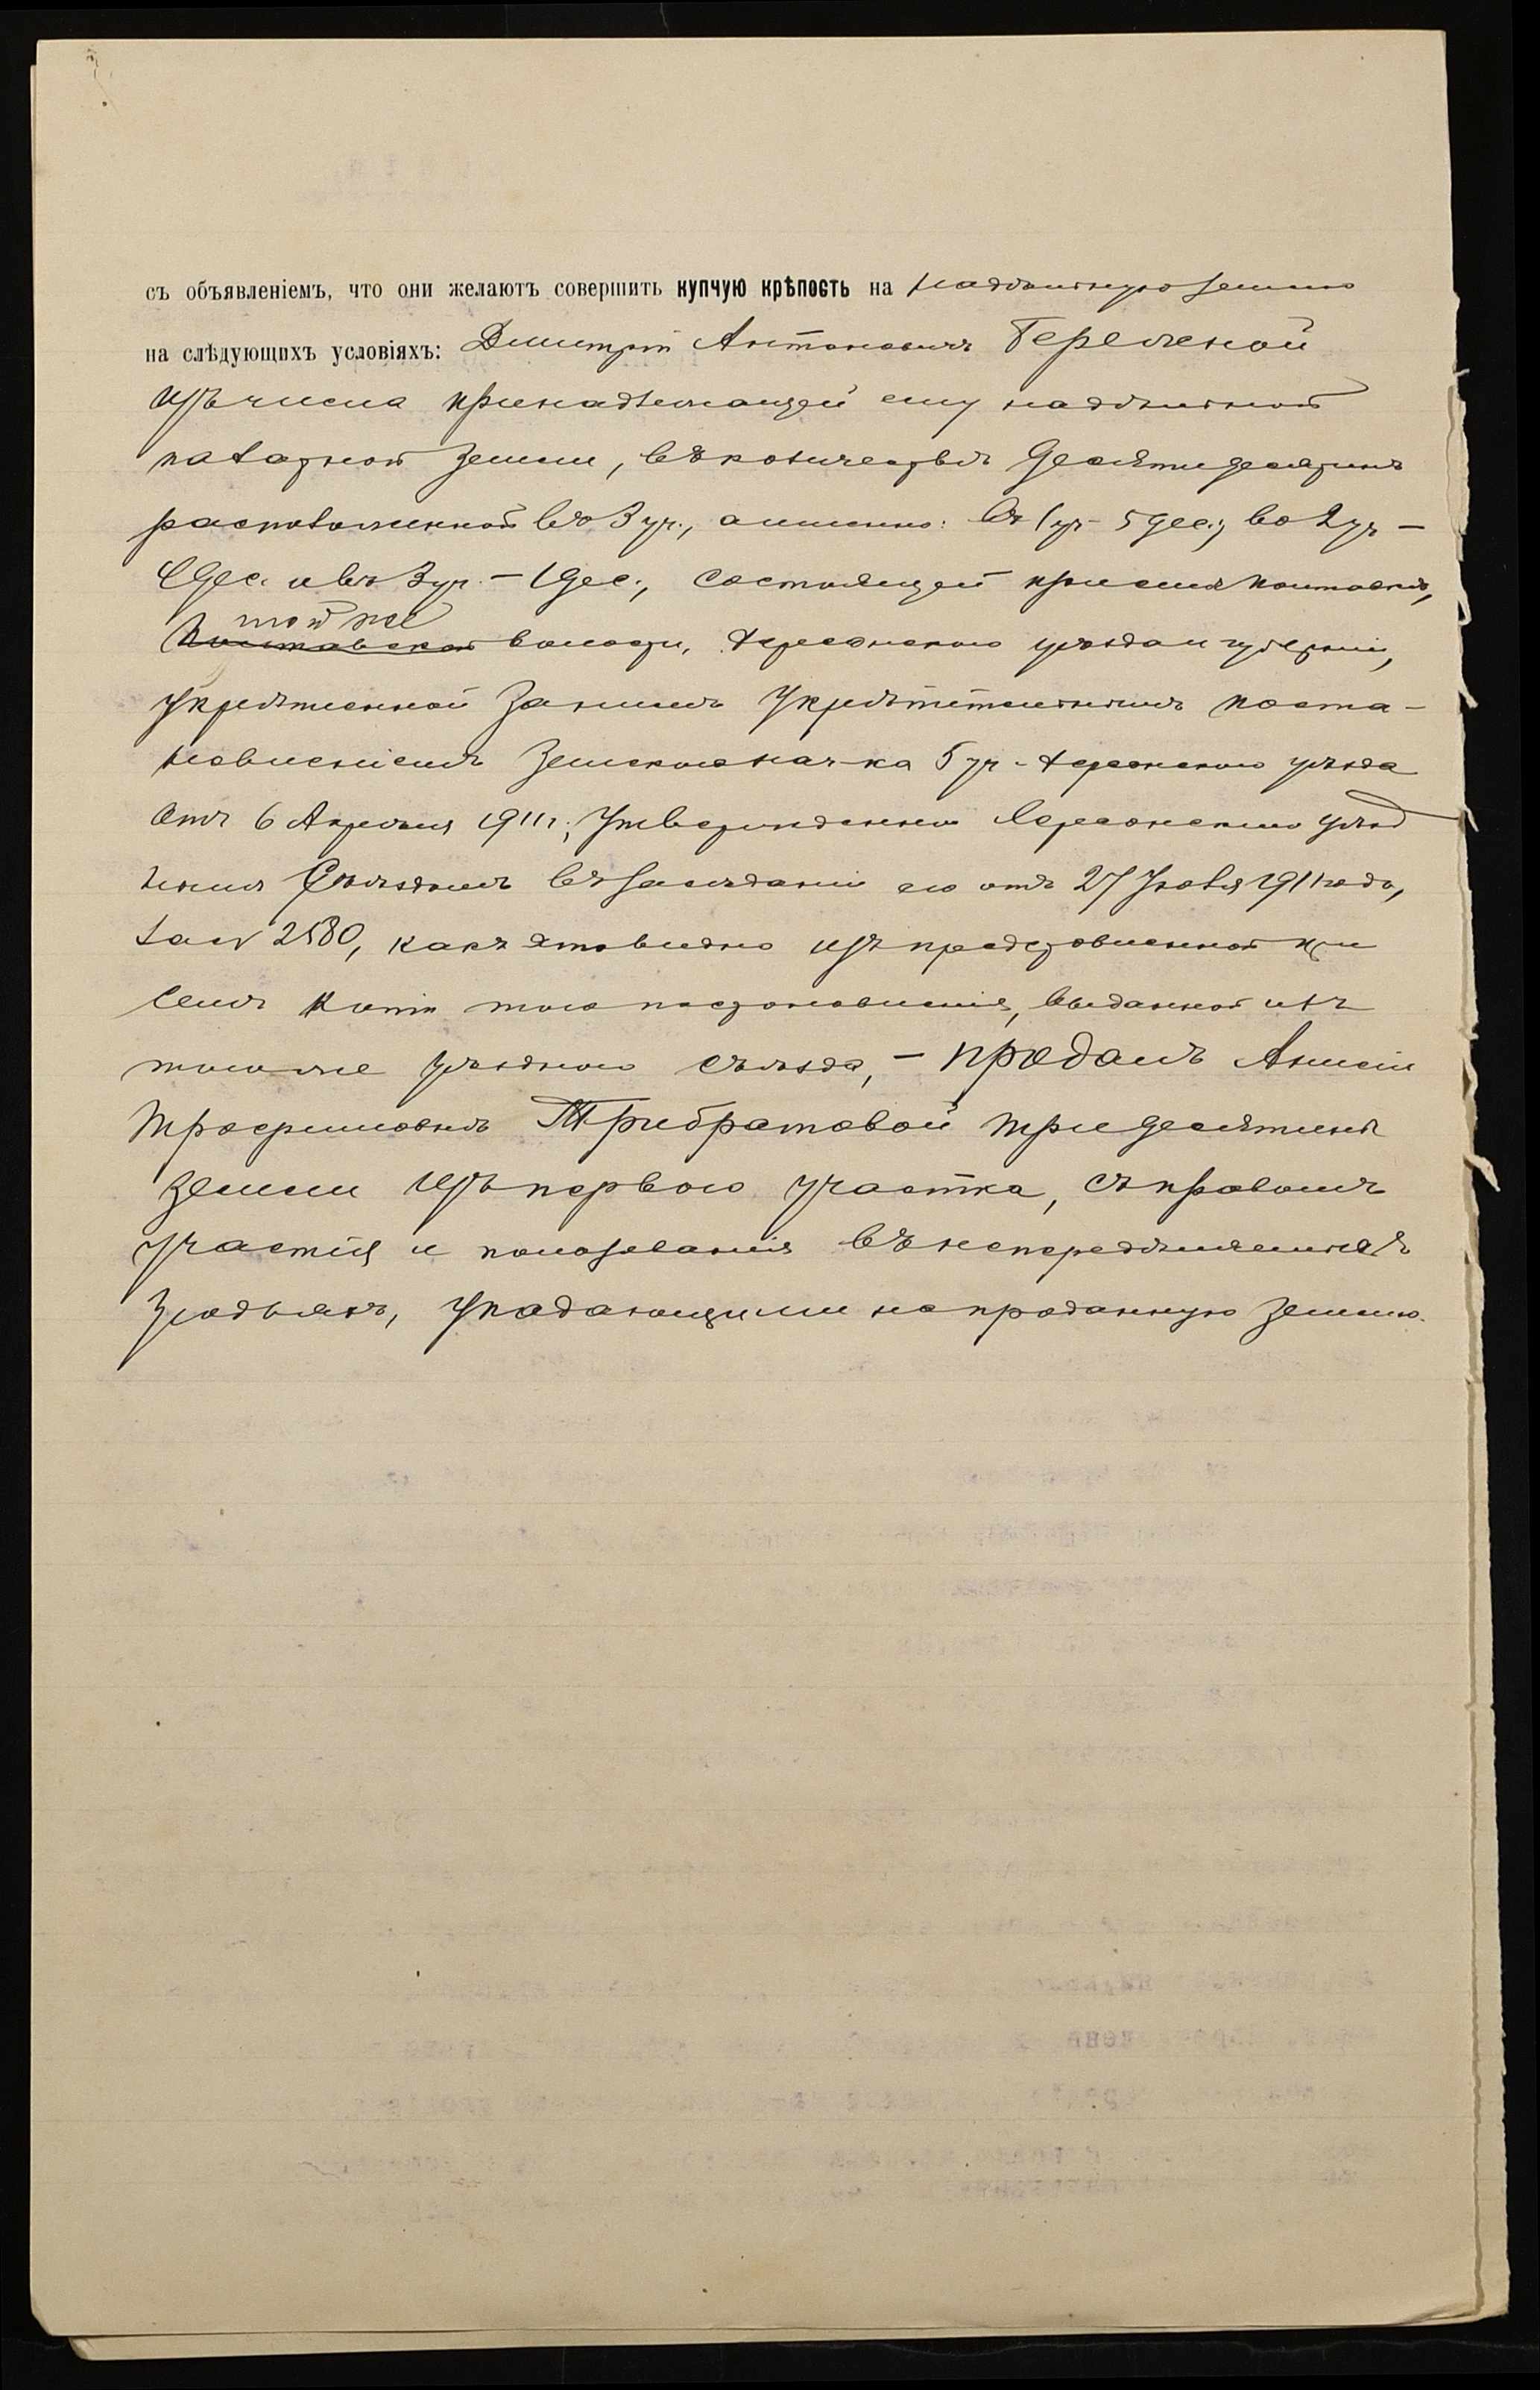 съ объявленіемъ, что они желаютъ совершить купчую крѣпость на надѣльную землю
на слѣдующихъ условіяхъ: Димитрій Антоновичъ Бережной
изъ числа принадлежащей ему надѣльной
пахатной земли, въ количествѣ десяти десятинъ
расположенной въ 3 уч., а именно: въ 1 уч - 5 дес., во 2 уч —
4 дес. и въ 3 уч. — 1 дес., состоящей при селѣ
той же
волости, Херсонского уѣзда и губерніи,
укрѣпленной за нимъ Укрѣпительнымъ поста-
новленіемъ Земского нач-ка 5 уч. Херсонского уѣзда
отъ 6 Апрѣля 1911 г., утвержденным Херсонским уѣзд
ным Съѣздомъ въ засѣданіи его отъ 27 Іюля 1911 года,
за № 2580, какъ это видно изъ представленной при
семъ копіи того постановленія, выданной изъ
того же уѣздного съѣзда, — продалъ Анисіи
Трофимовнѣ Трибратовой три десятины
земли изъ первого участка, съ правомъ
участія и пользованія въ непередѣляемыхъ
угодьяхъ, упадающими на проданную землю.